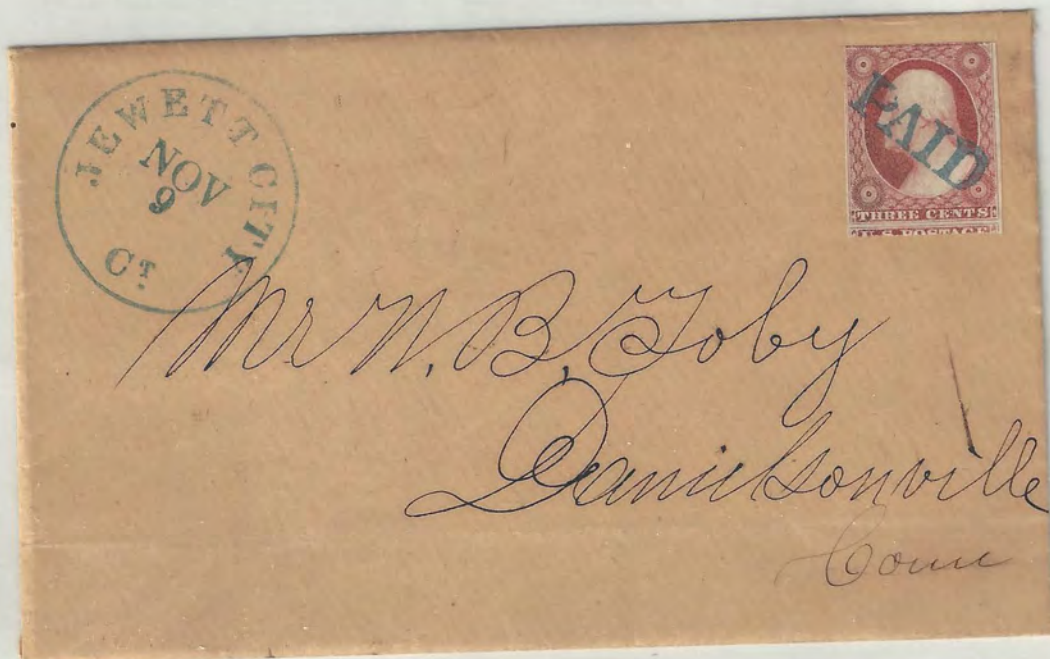 JEWETT CITY
NOV
9
CT.
PAID
THREE CENTS
U.S. POSTAGE
Mr N. B. Toby
Danielsonville
Conn